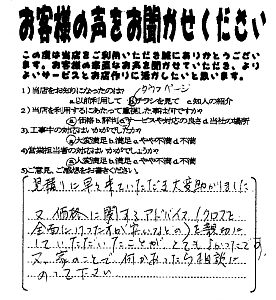 お客様の声をお聞かせください
この度は当店をご利用いただき誠にありがとうござい
ます。お客様の率直なお声を聞かせていただき、より
よいサービスとお店作りに活かしたいと思います。
タウンページ
1)当店をお知りになったのは?
a.以前利用して b.チラシを見て c.知人の紹介
2)当店を利用するにあたって重視した事は何ですか?
a.価格 b.評判 c.サービスや対応の良さ d.当社の場所
3)工事中の対応はいかがでしたか?
a.大変満足 b.満足 c.やや不満 d.不満
4)営業担当者の対応はいかがでしたか?
a.大変満足 b.満足 c.やや不満 d.不満
5)ご意見、ご感想をお書きください。
見積りに早く来ていただき大変助かりました
又、価格に関するアドバイス(クロスを
全面にはった方が安いなどの)を親切に
していただいたことがとてもよかったです
又、家のことで何かあったら相談に
のって下さい